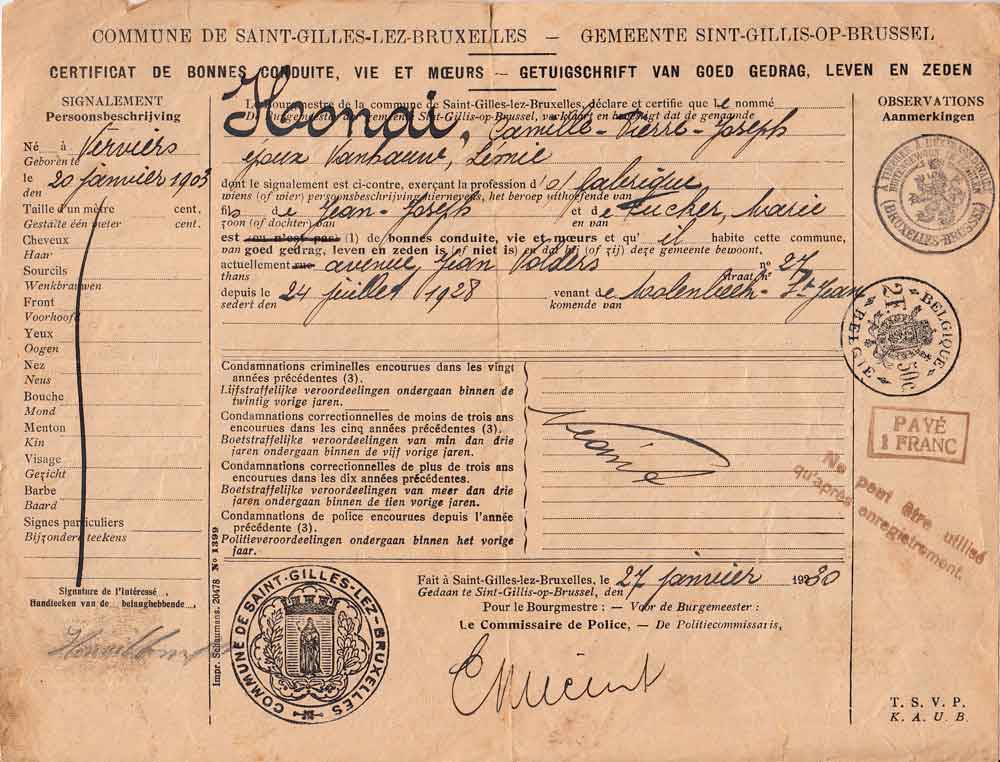 COMMUNE DE SAINT-GILLES-LEZ-BRUXELLES — GEMEENTE SINT-GILLIS-OP-BRUSSEL
CERTIFICAT DE BONNES CONDUITE, VIE ET MŒURS — GETUIGSCHRIFT VAN GOED GEDRAG, LEVEN EN ZEDEN
SIGNALEMENT
Persoonsbeschrijving
Né à Verviers
Geboren te
le 20 janvier 1903
den
Taille d'un mètre cent.
Gestalte één meter cent.
Cheveux
Haar
Sourcils
Wenkbrauwen
Front
Voorhoofd
Yeux
Oogen
Nez
Neus
Bouche
Mond
Menton
Kin
Visage
Gezicht
Barbe
Baard
Signes particuliers
Bijzondere teekens
Signature de l'intéressé,
Handteeken van de belanghebbende,
Le Bourgmestre de la commune de Saint-Gilles-lez-Bruxelles, déclare et certifie que le nommé
De Burgemeester der gemeente Sint-Gillis-op-Brussel, verklaart en bevestigt dat de genaamde
Honai, Camille-Pierre-Joseph
époux
dont le signalement est ci-contre, exerçant la profession d'
wiens (of wier) persoonsbeschrijving hiernevens, het beroep uitoefenende van
fils de Jean-Joseph et de Marie
zoon (of dochter) van en van
est (ou n'est pas) (1) de bonnes conduite, vie et mœurs et qu'il habite cette commune,
van goed gedrag, leven en zeden is (of niet is) en dat hij (of zij) deze gemeente bewoont.
actuellement rue avenue Jean Volders n° 27
thans straat nr
depuis le 24 juillet 1928 venant de Molenbeek-St Jean
sedert den komende van
Condamnations criminelles encourues dans les vingt
années précédentes (3).
Lijfstraffelijke veroordeelingen ondergaan binnen de
twintig vorige jaren.
Condamnations correctionnelles de moins de trois ans
encourues dans les cinq années précédentes (3).
Boetstraffelijke veroordeelingen van min dan drie
jaren ondergaan binnen de vijf vorige jaren.
Condamnations correctionnelles de plus de trois ans
encourues dans les dix années précédentes.
Boetstraffelijke veroordeelingen van meer dan drie
jaren ondergaan binnen de tien vorige jaren.
Condamnations de police encourues depuis l'année
précédente (3).
Politieveroordeelingen ondergaan binnen het vorige
jaar.
Néant
Impr. Schaumans. 20478 No 1399
COMMUNE DE SAINT-GILLES-LEZ-BRUXELLES
Fait à Saint-Gilles-lez-Bruxelles, le 27 janvier 1930
Gedaan te Sint-Gillis-op-Brussel, den
Pour le Bourgmestre : — Voor de Burgemeester :
Le Commissaire de Police, — De Politiecommissaris,
OBSERVATIONS
Aanmerkingen
(BRUXELLES-BRUSSEL)
BELGIQUE
BELGIË
2F 50c
PAYÉ
1 FRANC
Ne peut être utilisé
qu'après enregistrement.
T. S. V. P.
K. A. U. B.